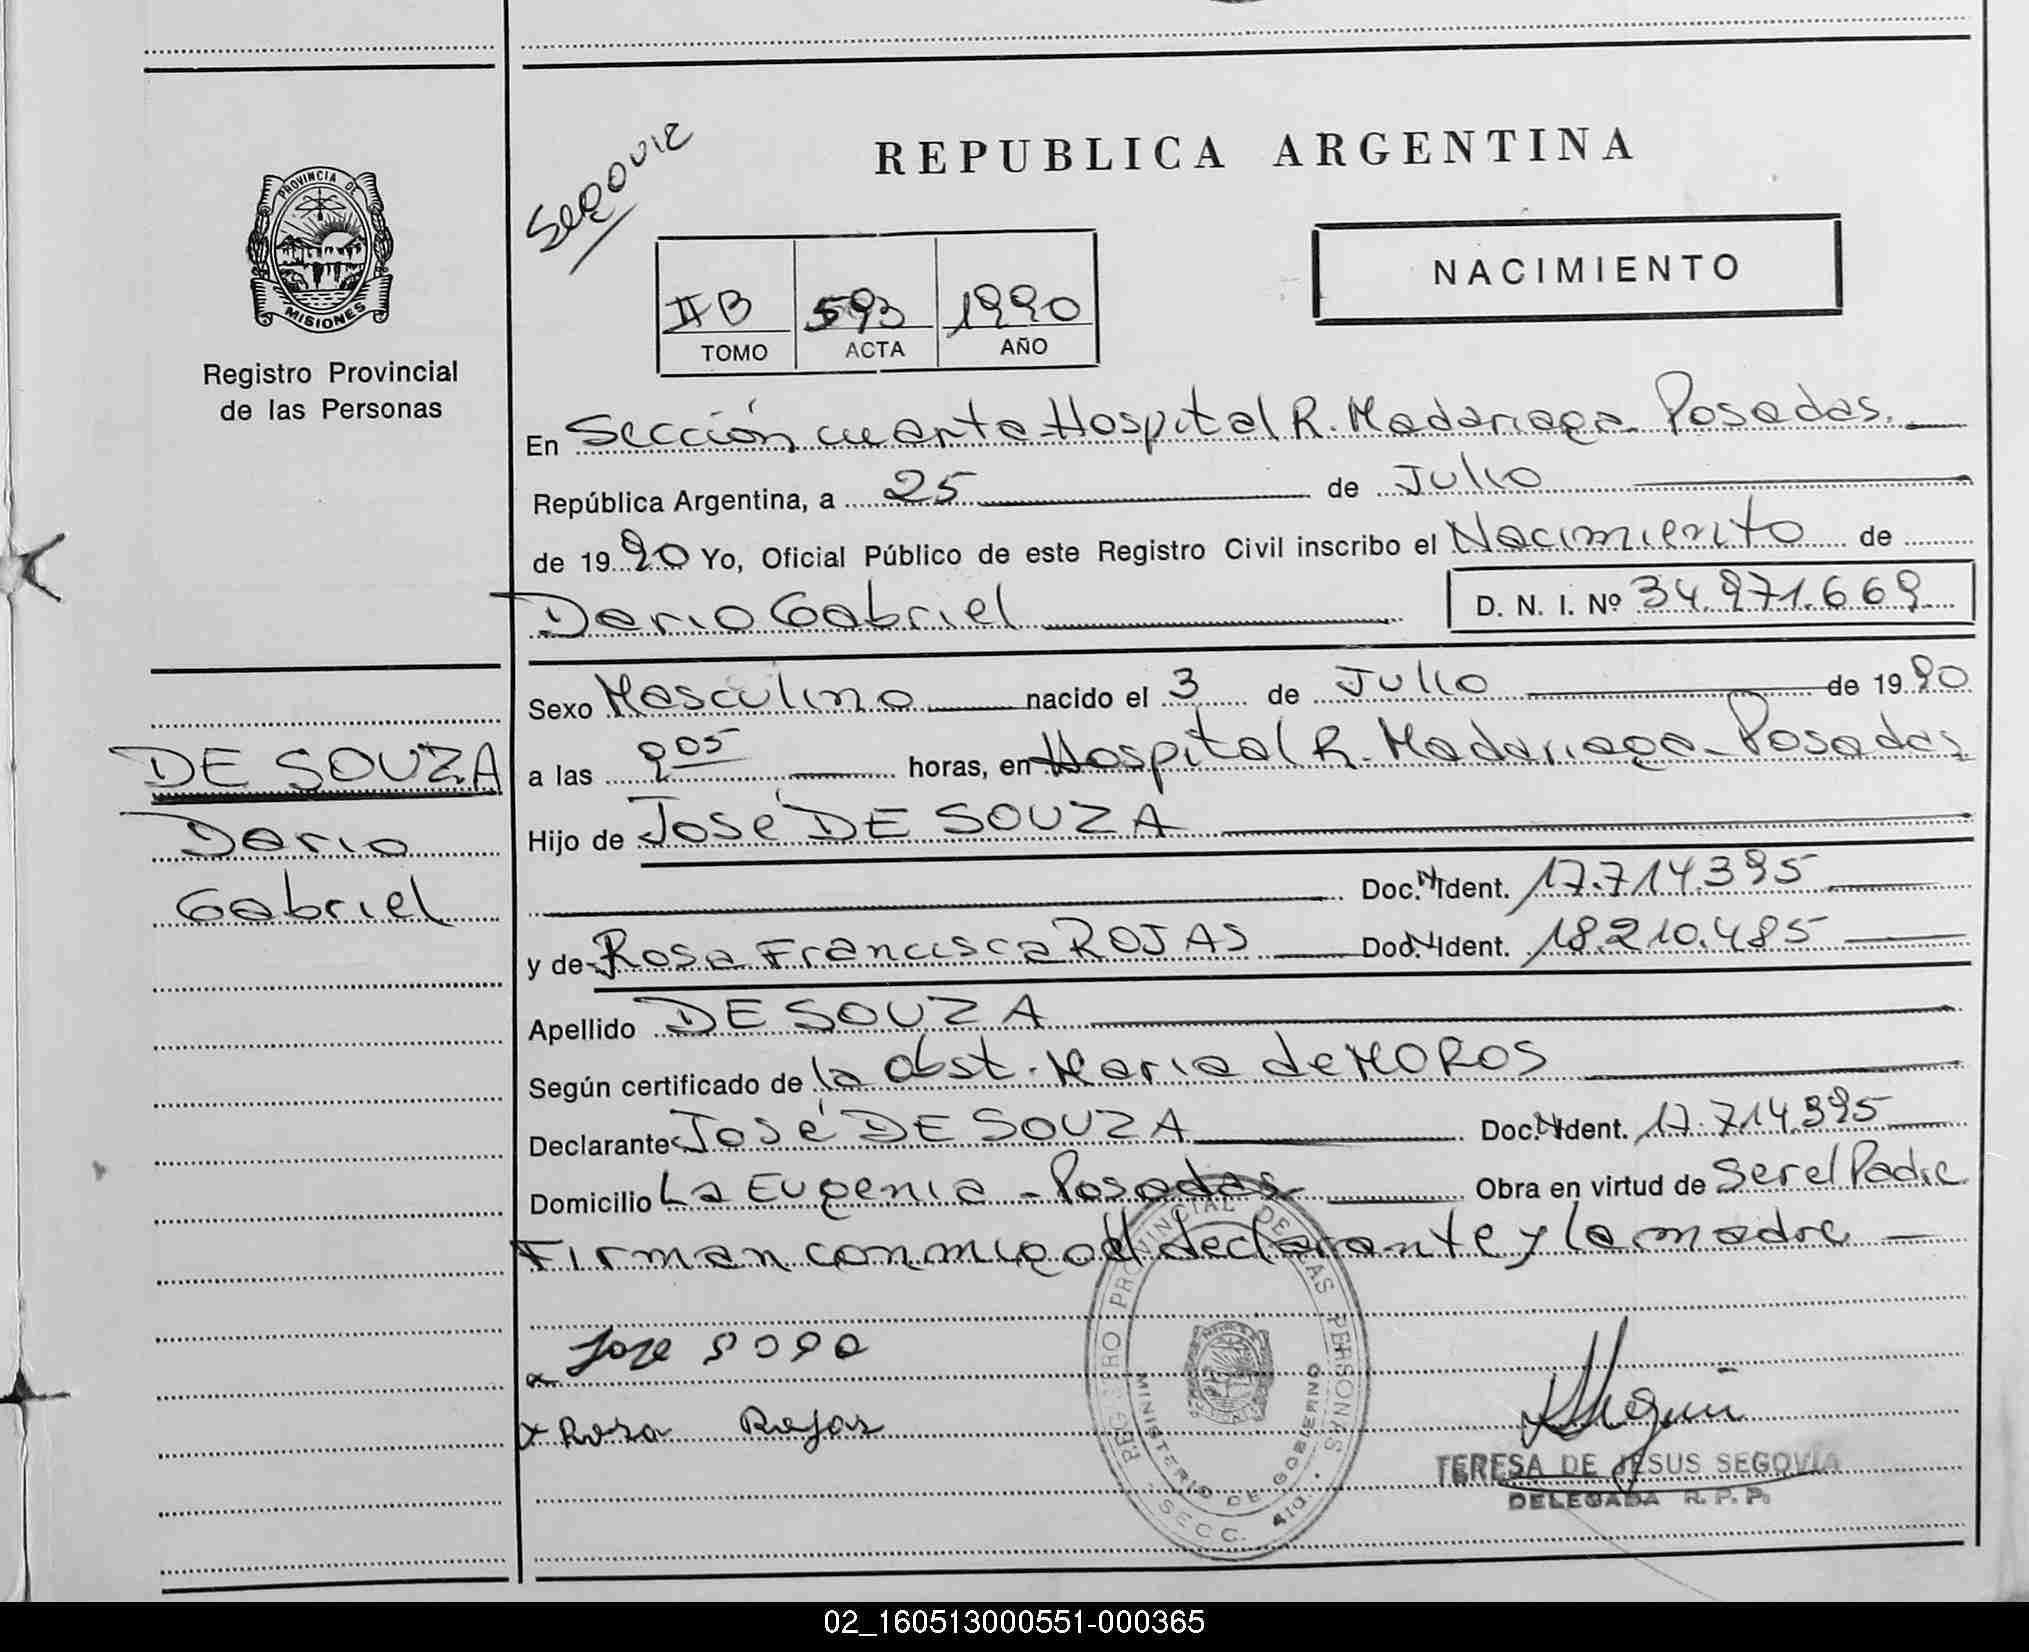 REPUBLICA ARGENTINA
PROVINCIA DE
MISIONES
Registro Provincial
de las Personas
NACIMIENTO
IIB 593 1990
TOMO ACTA AÑO
En Sección cuarta Hospital R. Madariaga Posadas.
República Argentina, a 25 de Julio
de 1990 Yo, Oficial Público de este Registro Civil inscribo el Nacimiento de
Dario Gabriel D. N. I. Nº 34.971.669
Sexo Masculino nacido el 3 de Julio de 1990
DE SOUZA
Dario
Gabriel
a las 9 05 horas, en Hospital R. Madariaga - Posadas
Hijo de José DE SOUZA
Doc. N Ident. 17.714.395
y de Rosa Francisca ROJAS Doc. N Ident. 18.210.485
Apellido DE SOUZA
Según certificado de la obst. Maria de MOROS
Declarante José DE SOUZA Doc. N Ident. 17.714.395
Domicilio La Eugenia - Posadas Obra en virtud de ser el Padre
Firman conmigo el declarante y la madre
x Rosa Rojas
REGISTRO PROVINCIAL DE LAS PERSONAS
MINISTERIO DE GOBIERNO
SECC. 4ta.
TERESA DE JESUS SEGOVIA
DELEGADA R. P. P.
02_160513000551-000365